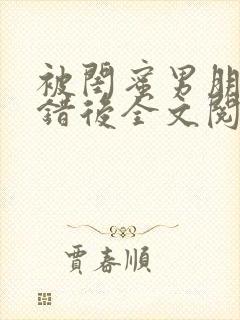 被閨蜜男朋
錯後全文閱
賈春順